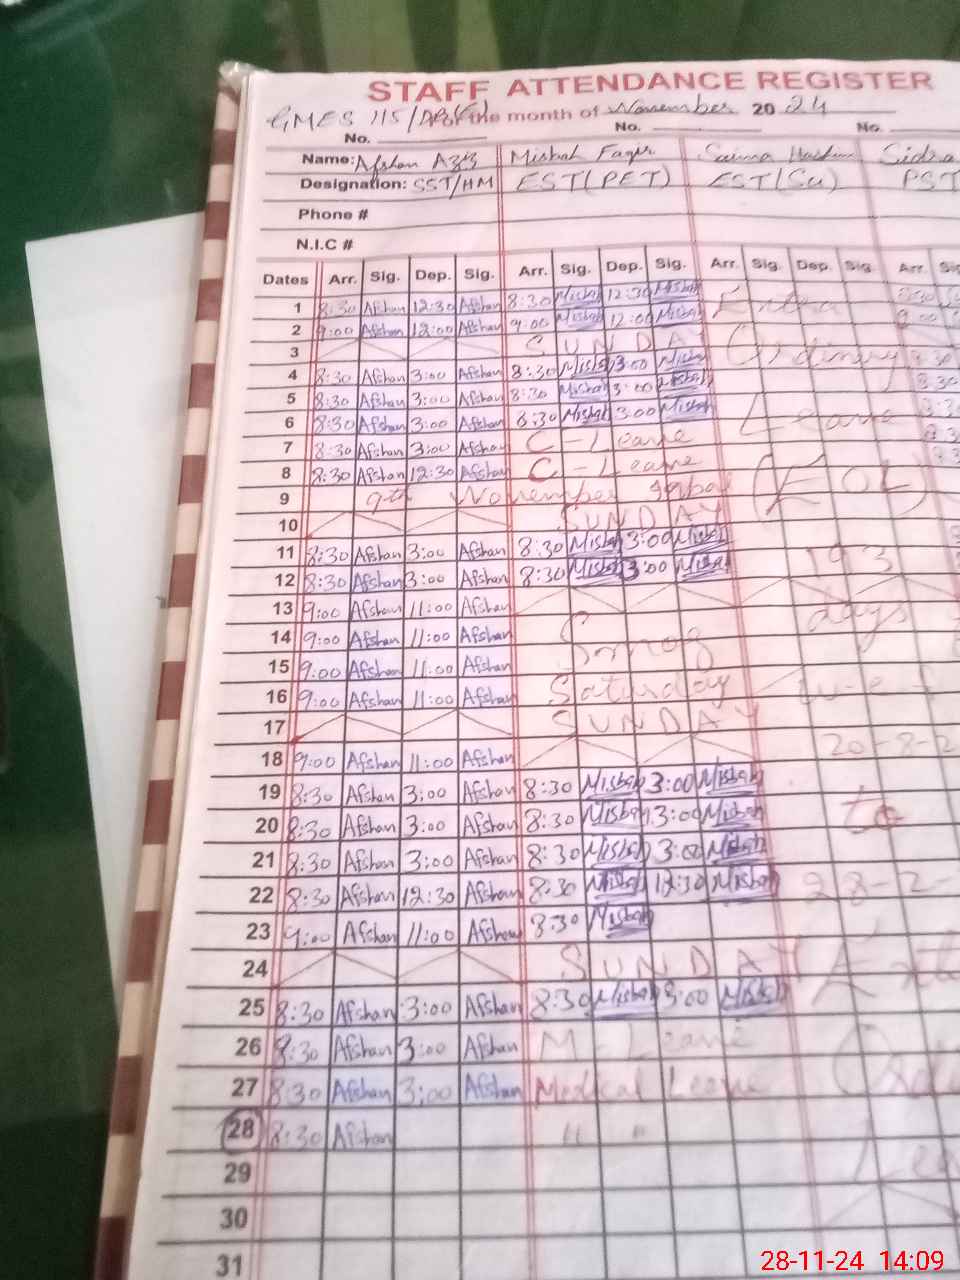 STAFF ATTENDANCE REGISTER
GMES 115/ of the month of November 2024
No. No. No.
Name: Afshan Aziz Misbah Faqir Saima Sidra
Designation: SST/HM EST(PET) EST(Sci) PST
Phone #
N.I.C #
Dates Arr. Sig. Dep. Sig. Arr. Sig. Dep. Sig. Arr. Sig. Dep. Sig. Arr.
1 8:30 Afshan 12:30 Afshan 8:30 Misbah 12:30 Misbah Extra
2 9:00 Afshan 12:00 Afshan 9:00 Misbah 12:00 Misbah
3 SUNDAY Ordinary
4 8:30 Afshan 3:00 Afshan 8:30 Misbah 3:00 Misbah
5 8:30 Afshan 3:00 Afshan 8:30 Misbah 3:00 Misbah
6 8:30 Afshan 3:00 Afshan 8:30 Misbah 3:00 Misbah Leave
7 8:30 Afshan 3:00 Afshan C-Leave
8 8:30 Afshan 12:30 Afshan C-Leave
9 9th November Iqbal (EOL)
10 SUNDAY
11 8:30 Afshan 3:00 Afshan 8:30 Misbah 3:00 Misbah 193
12 8:30 Afshan 3:00 Afshan 8:30 Misbah 3:00 Misbah
13 9:00 Afshan 11:00 Afshan days
14 9:00 Afshan 11:00 Afshan Smog
15 9:00 Afshan 11:00 Afshan
16 9:00 Afshan 11:00 Afshan Saturday w-e-f
17 SUNDAY
18 9:00 Afshan 11:00 Afshan 20-8-2
19 8:30 Afshan 3:00 Afshan 8:30 Misbah 3:00 Misbah
20 8:30 Afshan 3:00 Afshan 8:30 Misbah 3:00 Misbah to
21 8:30 Afshan 3:00 Afshan 8:30 Misbah 3:00 Misbah
22 8:30 Afshan 12:30 Afshan 8:30 Misbah 12:30 Misbah 28-2-
23 9:00 Afshan 11:00 Afshan 8:30 Misbah
24 SUNDAY
25 8:30 Afshan 3:00 Afshan 8:30 Misbah 3:00 Misbah
26 8:30 Afshan 3:00 Afshan M-Leave
27 8:30 Afshan 3:00 Afshan Medical Leave
28 8:30 Afshan " "
29
30
31
28-11-24 14:09